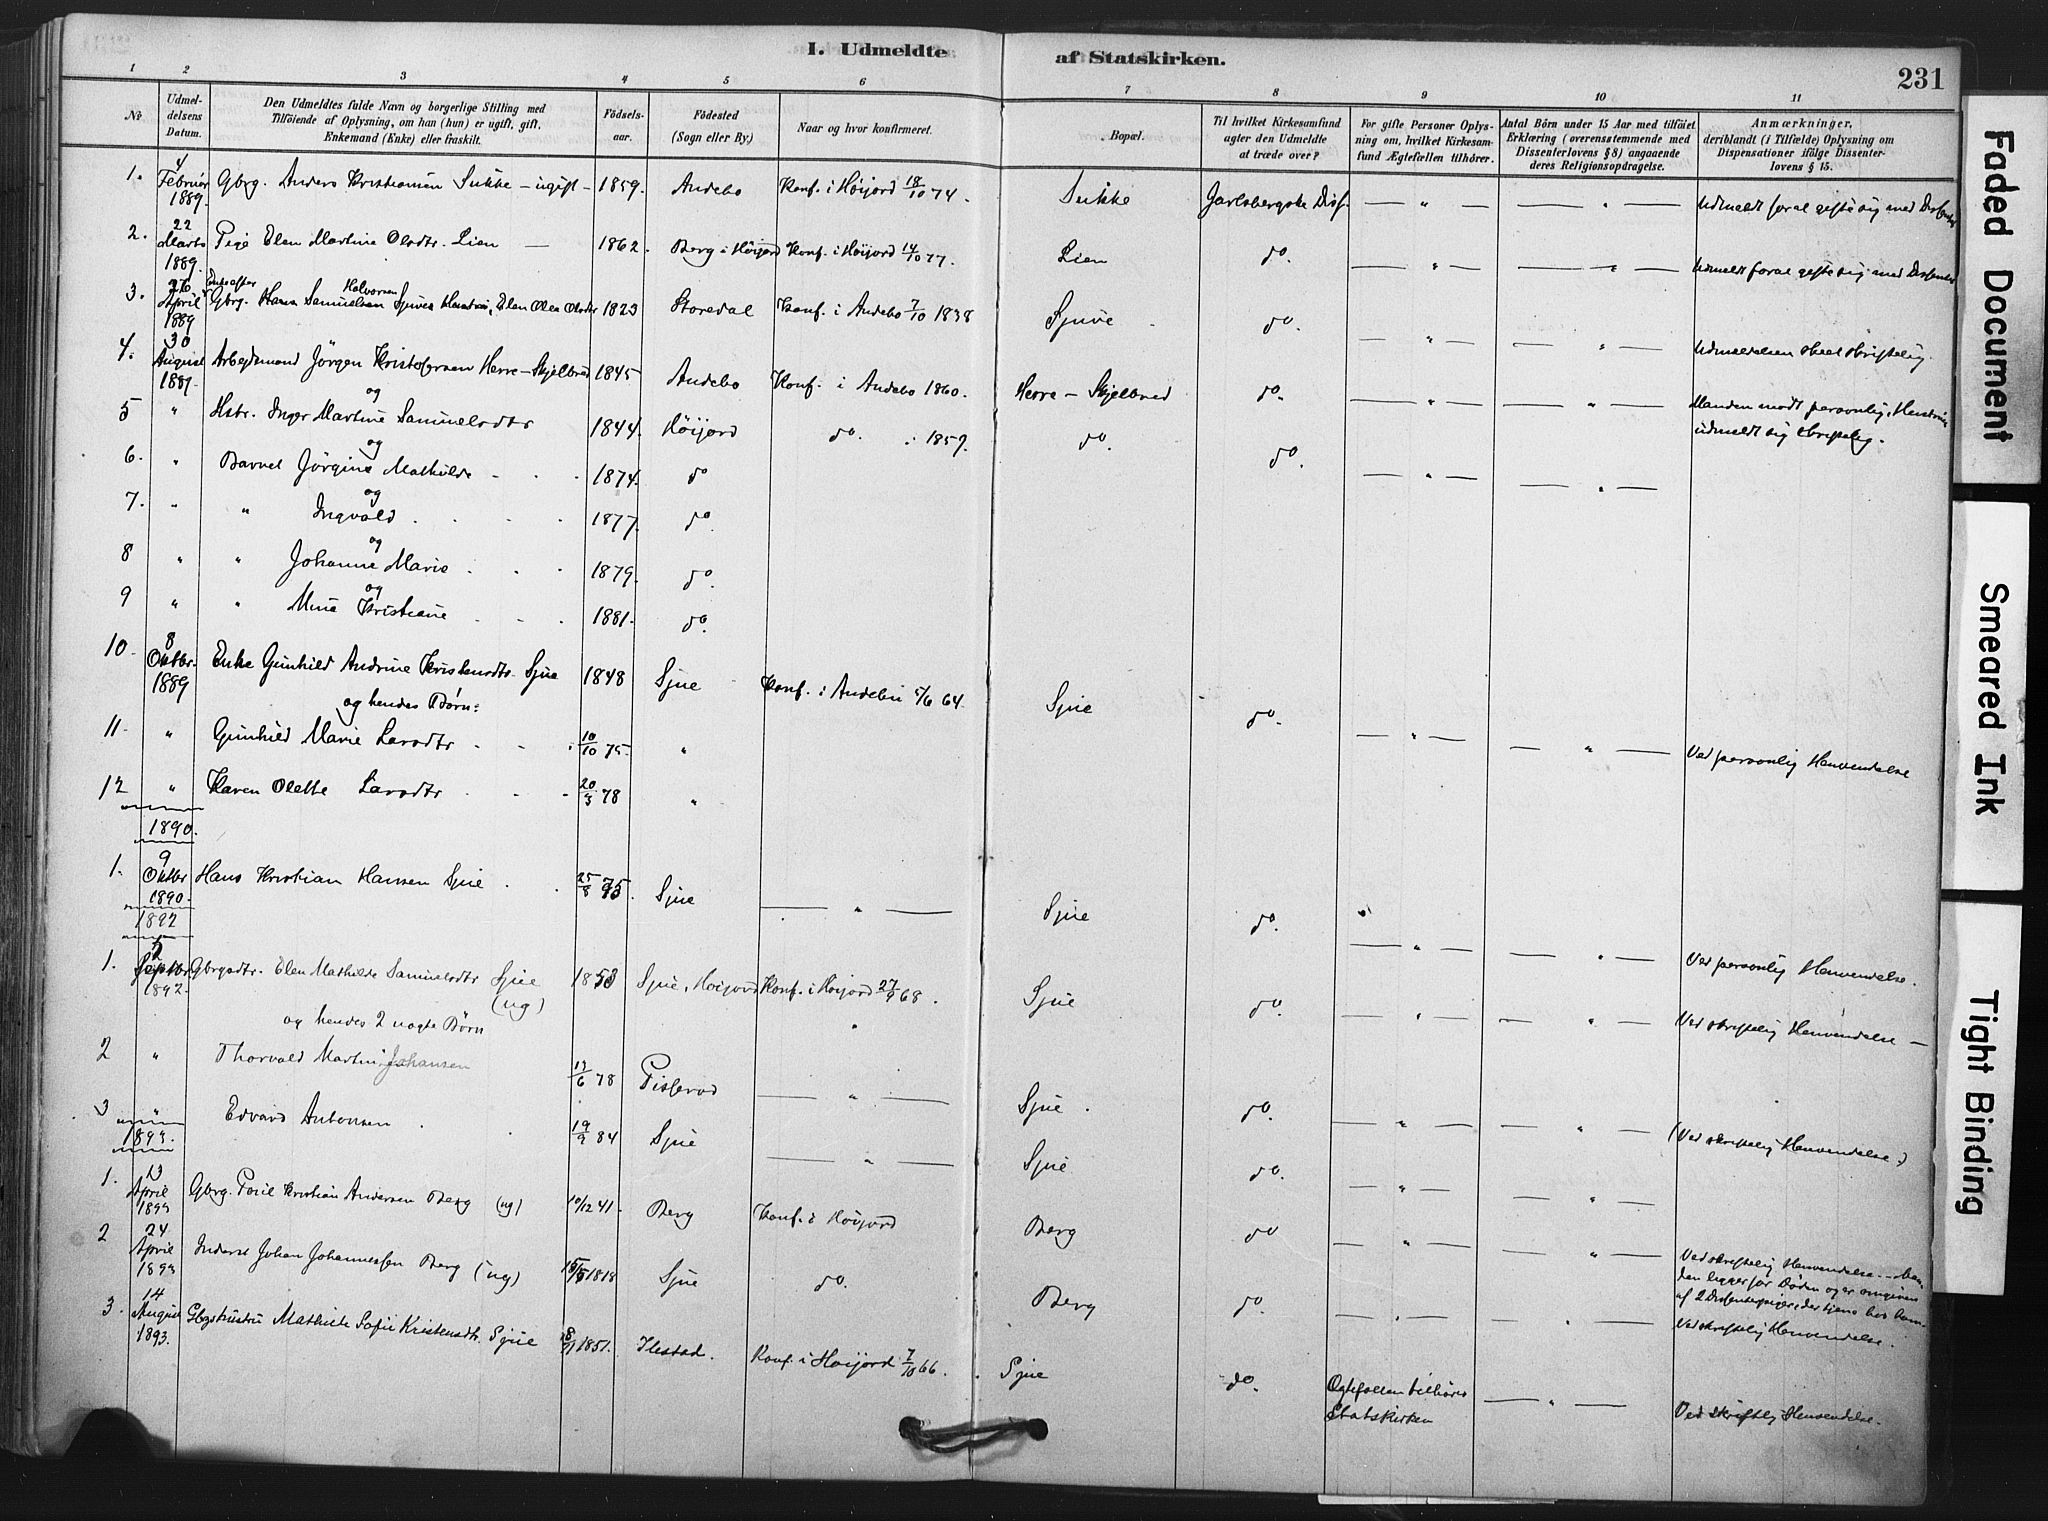 I. Udmeldte af Statskirken.
231
1 2 3 4 5 6 7 8 9 10 11
Nr.
Udmeldelsens Datum.
Den Udmeldtes fulde Navn og borgerlige Stilling med Tilföiende af Oplysning, om han (hun) er ugift, gift, Enkemand (Enke) eller fraskilt.
Födselsaar.
Födested (Sogn eller By.)
Naar og hvor konfirmeret.
Bopæl.
Til hvilket Kirkesamfund agter den Udmeldte at træde over?
For gifte Personer Oplysning om, hvilket Kirkesamfund Ægtefællen tilhörer.
Antal Börn under 15 Aar med tilföiet Erklæring (overensstemmende med Dissenterlovens § 8) angaaende deres Religionsopdragelse.
Anmærkninger, deriblandt (i Tilfælde) Oplysning om Dispensationer ifölge Dissenterlovens § 15.
1. 4 Februar 1889. Gbrg. Anders Kristiansen Sukke – ugift – 1859. Andebo Konf. i Höijord 18/10 74. Sukke Jarlsbergske Diss. — " — — " — Udmeldt for at gifte sig med Dissenter
2. 22 Marts 1889. Pige Elen Martine Olsdtr. Lien — 1862. Berg i Höijord Konf. i Höijord 14/10 77. Lien do. — " — — " — Udmeldt for at gifte sig med Dissenter
3. 26 April 1889 Enke efter Gbrg. Hans Samuelsen Halvorsen Sjues Hustru, Elen Olea Olsdtr 1823 Storedal Konf. i Andebo 7/10 1838 Sjue do. — " — — " — Udmeldelsen skeet skriftelig.
4. 30 August 1889. Arbejdsmand Jörgen Kristofersen Herre-Skjelbred 1845 Andebo Konf. i Andebo 1860. Herre – Skjelbred do. — " — — " — Manden mödt personlig, Hustruen udmeldt sig skriftelig.
og
5 " Hstr. Inger Martine Samuelsdtr 1844. Höijord do. i 1859. do. do. — " — — " —
og
6. " Barnet Jörgine Mathilde 1874. do
og
7. " " Ingvald 1877. do.
og
8 " " Johanne Marie 1879. do.
og
9 " " Mina Kristiane 1881. do.
10. 8 Oktbr. 1889 Enke Gunhild Andrine Kristensdtr. Sjue 1848 Sjue Konf. i Andebu 5/6 64. Sjue do. — " — — " — Ved personlig Henvendelse
og hendes Börn:
11. " Gunhild Marie Larsdtr 10/10 75. "
12 " Karen Olette Larsdtr 20/3 78 "
1890.
1. 9 Oktbr 1890. Hans Kristian Hansen Sjue 25/8 75. Sjue — " — Sjue do. — " — — " — Ved personlig Henvendelse.
1892
1. Septbr. 1892. Gbrgsdtr. Elen Mathilde Samuelsdtr Sjue (ug) 1853 Sjue, Höijord Konf. i Höijord 27/9 68. Sjue do. — " — — " — Ved skriftelig Henvendelse —
og hendes 2 uægte Börn "
2 " Thorvald Martin Johansen 17/6 78 — " — Sjue do. — " — — " — (Ved skriftelig Henvendelse.)
3 " Edvard Antonsen 19/9 84 Sjue — " — Sjue do. — " — — " —
1893.
1. 13 April 1893 Gbrg. Poul Kristian Andersen Berg (ug) 10/12 41. Berg Konf. i Höijord Berg do — " — — " — Ved skriftelig Henvendelse. – Manden ligger for Döden og er omgiven af 2 Dissenterpiger, der tjene hos ham.
2 24 April 1893 Inderst Johan Johannessen Berg (ug) 1818 Sjue do. Berg do. — " — — " — Ved skriftelig Henvendelse.
3. 14 August 1893. Gbrgshustru Mathilde Sofie Kristensdtr. Sjue 1851. Ilestad. Konf. i Höijord 7/10 66. Sjue do. Ægtefællen tilhörer Statskirken — " — Ved skriftlig Henvendelse.
Faded Document
Smeared Ink
Tight Binding